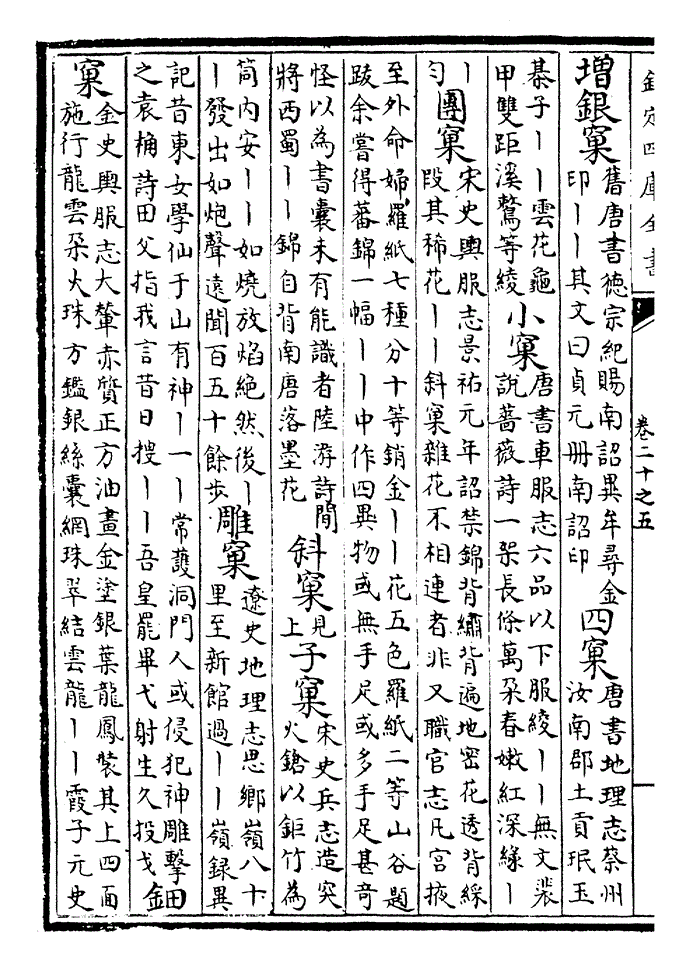 欽定四庫全書
卷二十之五
增銀窠
舊唐書德宗紀賜南詔異牟尋金
印｜｜其文曰貞元冊南詔印
四窠
唐書地理志蔡州
汝南郡土貢珉玉
棊子｜｜雲花龜
甲雙距溪鶩等綾
小窠
唐書車服志六品以下服綾｜｜無文裴
說薔薇詩一架長條萬朶春嫩紅深綠｜
｜
勻
團窠
宋史輿服志景祐元年詔禁錦背繡背遍地密花透背綵
段其稀花｜｜斜窠雜花不相連者非又職官志凡宮掖
至外命婦羅紙七種分十等銷金｜｜花五色羅紙二等山谷題
跋余嘗得蕃錦一幅｜｜中作四異物或無手足或多手足甚奇
怪以為書囊未有能識者陸游詩閒
將西蜀｜｜錦自背南唐落墨花
斜窠
見
上
子窠
宋史兵志造突
火鎗以鉅竹為
筒内安｜｜如燒放焰絶然後｜
｜發出如炮聲遠聞百五十餘步
雕窠
遼史地理志思鄉嶺八十
里至新館過｜｜嶺録異
記昔東女學仙于山有神｜一｜常護洞門人或侵犯神雕擊
之袁桷詩田父指我言昔日搜｜｜吾皇罷畢弋射生久投戈
鈿
窠
金史輿服志大輦赤質正方油畫金塗銀葉龍鳳裝其上四面
施行龍雲朶火珠方鑑銀絲囊網珠翠結雲龍｜｜霞子元史